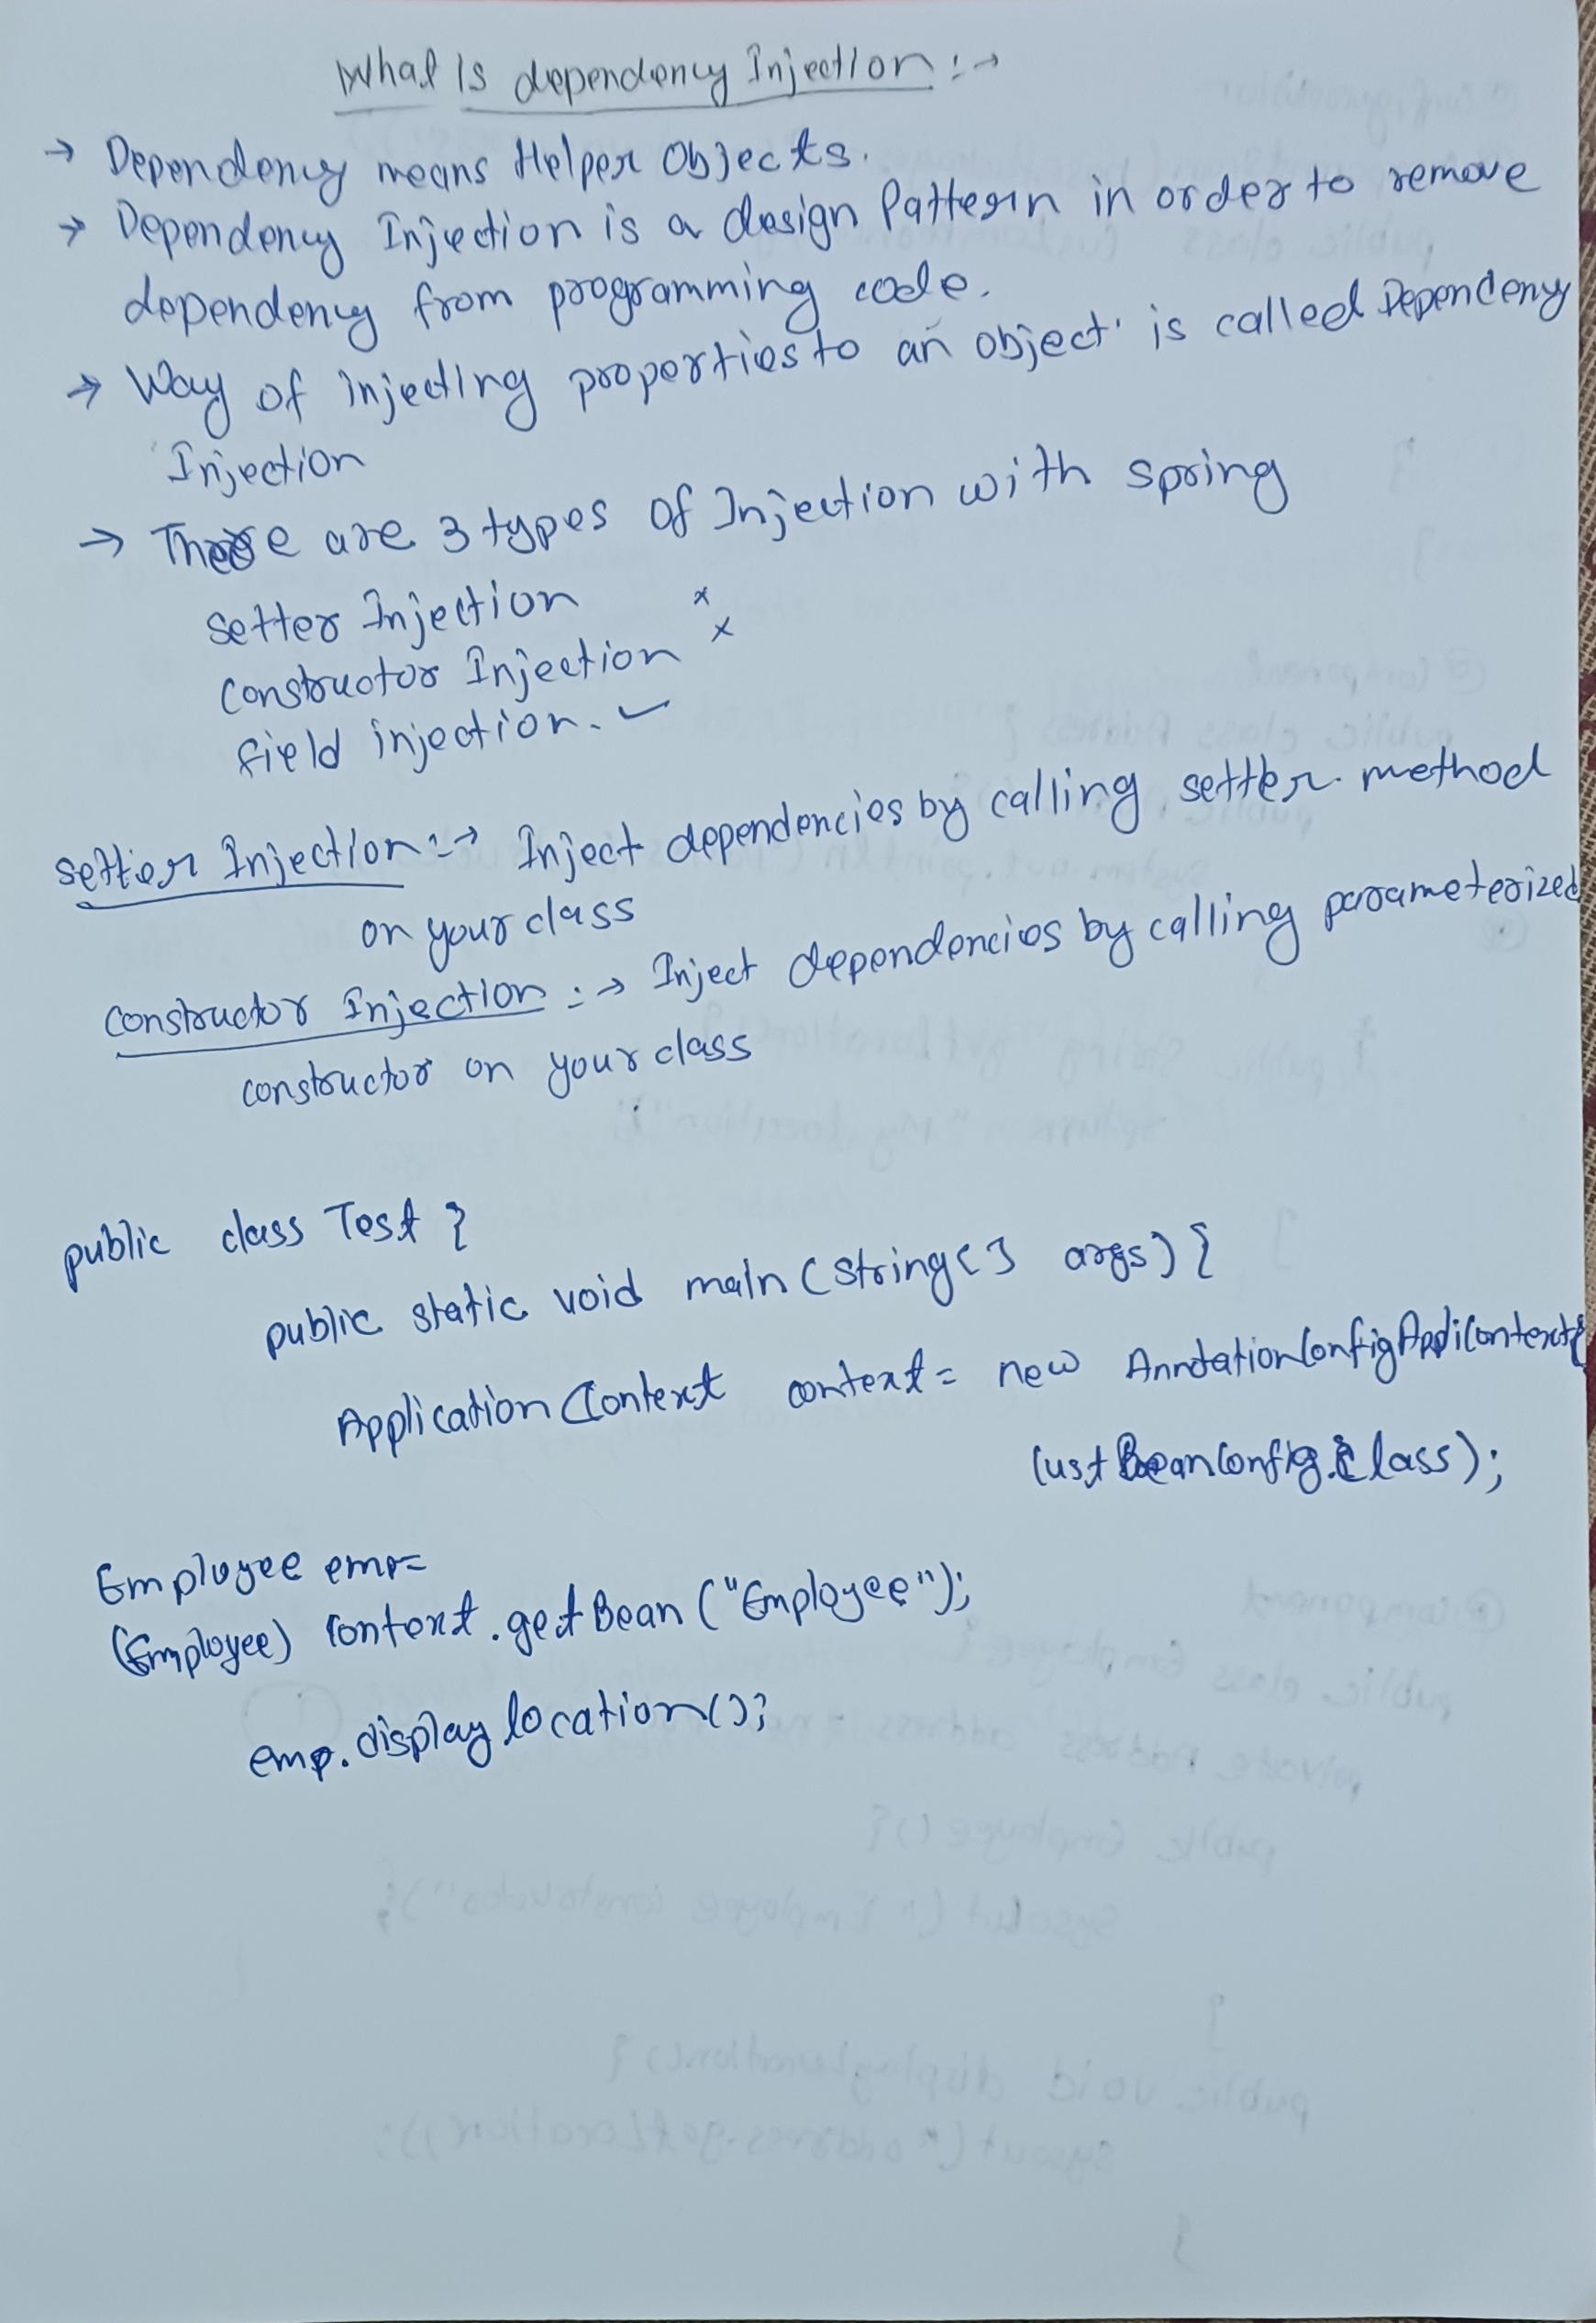 What Is dependency Injection :→
→ Dependency means Helper Objects.
→ Dependency Injection is a design Pattern in order to remove
dependency from programming code.
→ Way of injecting properties to an object is called Dependency
Injection
→ There are 3 types of Injection with spring
setter Injection ×
constructor Injection ×
field injection. ✓
setter Injection :→ Inject dependencies by calling setter method
on your class
constructor Injection :→ Inject dependencies by calling parameterized
constructor on your class
public class Test {
public static void main (string[] args) {
Application Context context = new AnnotationConfigAppliContext(
CustBeanConfig.class);
Employee emp=
(Employee) context.getBean ("Employee");
emp.display location();